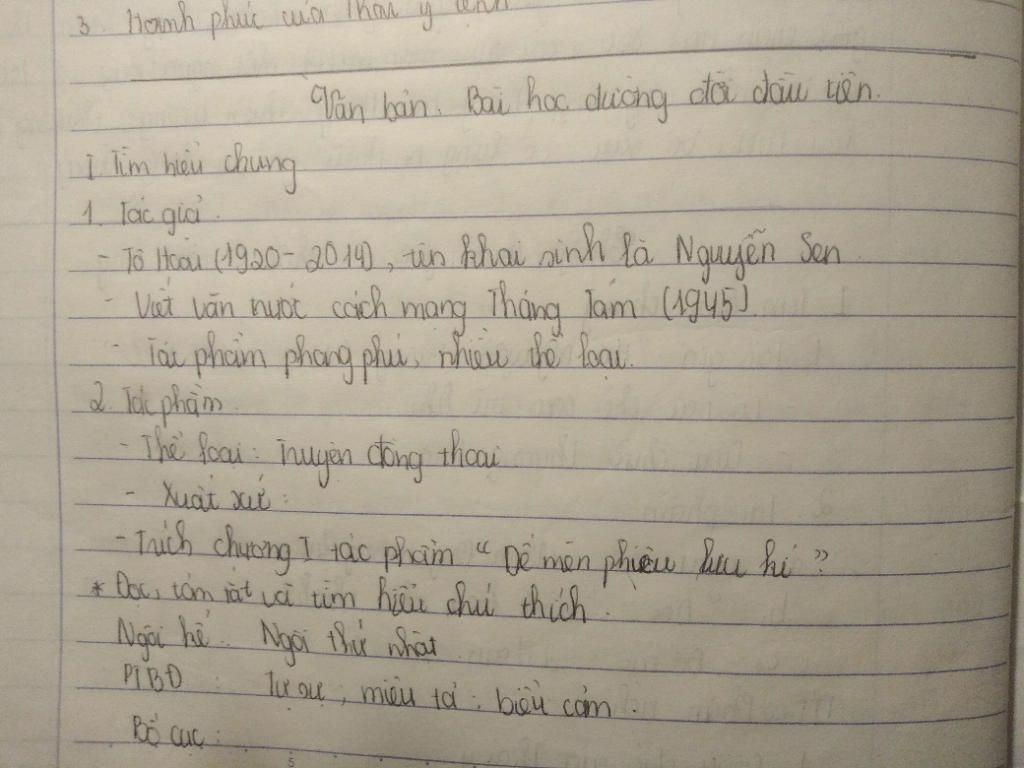 3. Hạnh phúc của Thầy y tênh
Văn bản. Bài học đường đời đầu tiên.
I Tìm hiểu chung
1. Tác giả.
- Tô Hoài (1920 - 2014), tên khai sinh là Nguyễn Sen
- Viết văn trước cách mạng Tháng Tám (1945)
- Tác phẩm phong phú, nhiều thể loại.
2. Tác phẩm.
- Thể loại: Truyện đồng thoại
- Xuất xứ:
- Trích chương I tác phẩm " Dế mèn phiêu lưu kí "
* Đọc, tóm tắt và tìm hiểu chú thích.
Ngôi kể. Ngôi thứ nhất
PTBĐ: Tự sự, miêu tả, biểu cảm.
Bố cục: